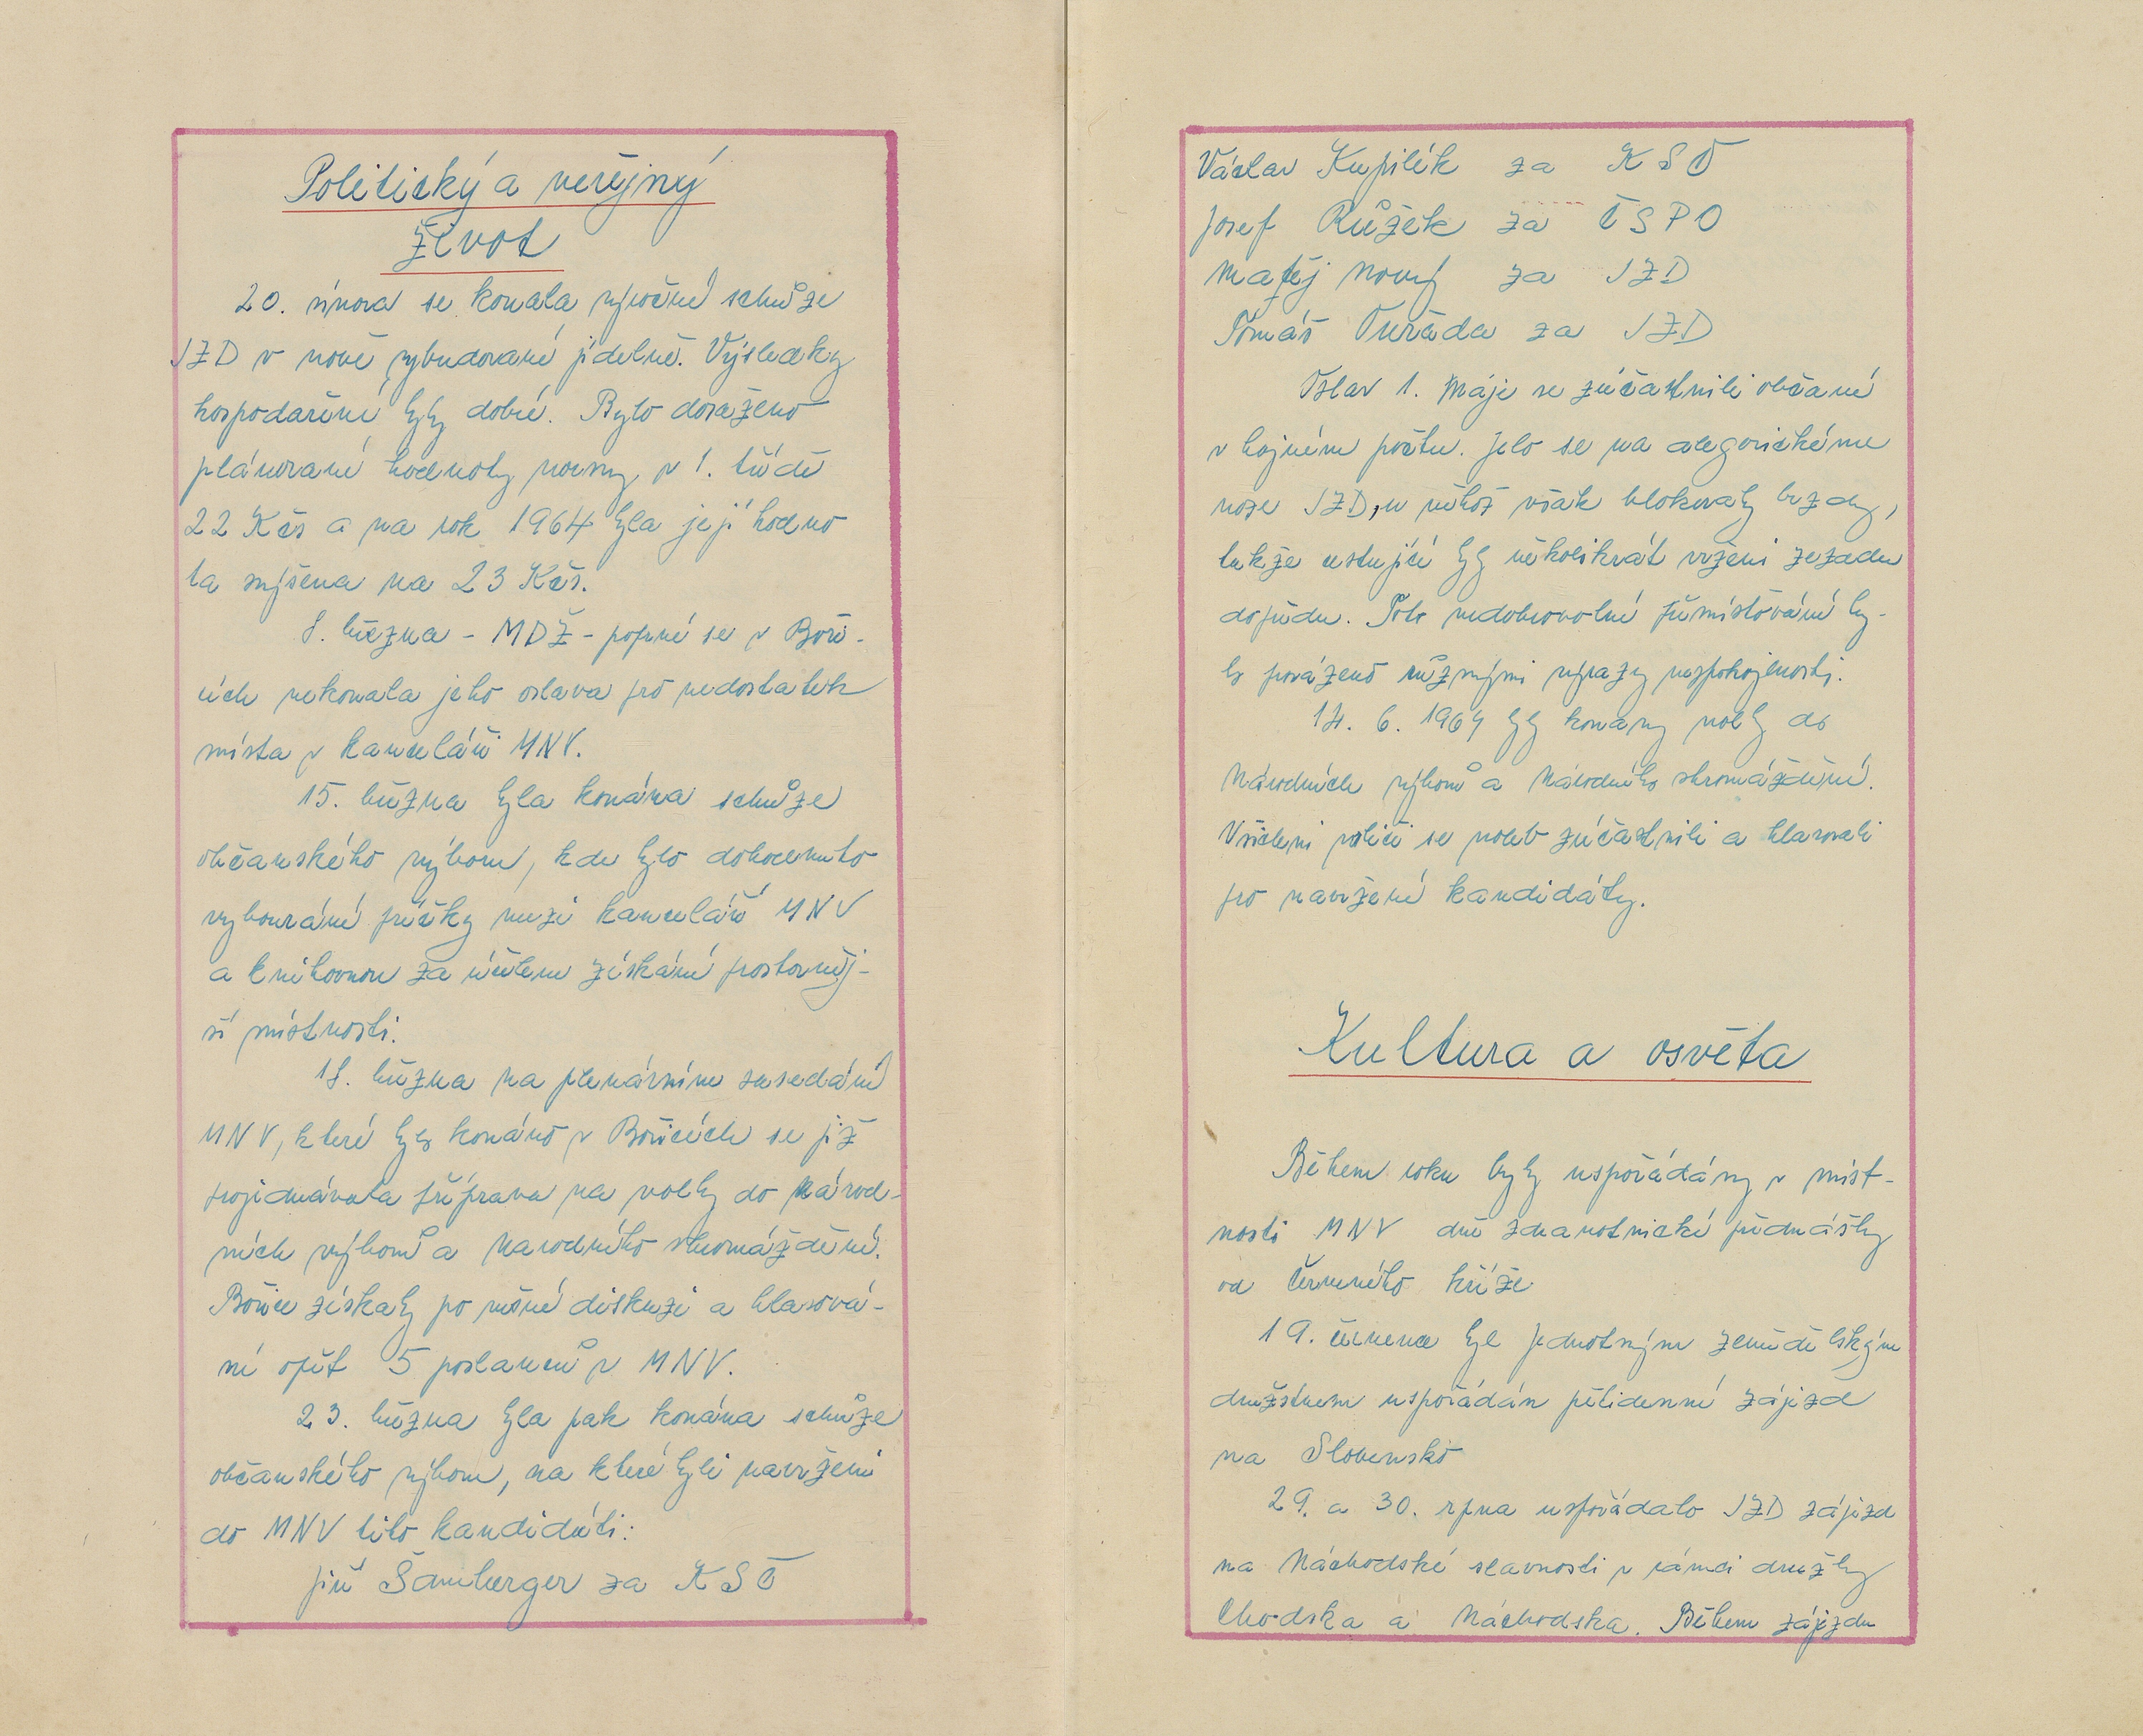 Politický a veřejný
život
20. února se konala výroční schůze
JZD v nově vybudované jídelně. Výsledky
hospodaření byly dobré. Bylo dosaženo
plánované hodnoty normy v 1. třídě
22 Kčs a na rok 1964 byla její hodno
ta zvýšena na 23 Kčs.
8. března - MDŽ - poprvé se v Boři-
cích nekonala jeho oslava pro nedostatek
místa v kanceláři MNV.
15. března byla konána schůze
občanského výboru, kde bylo dohodnuto
vybourání příčky mezi kanceláří MNV
a knihovnou za účelem získání prostorněj-
ší místnosti.
18. března na plenárním zasedání
MNV, které bylo konáno v Bořicích se již
projednávala příprava na volby do národ-
ních výborů a Národního shromáždění.
Bořice získaly po věcné diskuzi a hlasová-
ní opět 5 poslanců v MNV.
23. března byla pak konána schůze
občanského výboru, na které byli navrženi
do MNV tito kandidáti:
Jiří Šamberger za KSČ
Václav Kupilík za KSČ
Josef Růžek za ČSPO
Matěj Nový za JZD
Tomáš Čuřada za JZD
Oslav 1. Máje se zúčastnili občané
v hojném počtu. Jelo se na alegorickém
voze JZD, u něhož však blokovaly brzdy,
takže cestující byly několikrát vrženi zezadu
dopředu. Toto nedobrovolné přemísťování by-
lo provázeno různými výrazy nespokojenosti.
14. 6. 1964 byly konány volby do
Národních výborů a Národního shromáždění.
Všichni voliči se voleb zúčastnili a hlasovali
pro navržené kandidáty.
Kultura a osvěta
Během roku byly uspořádány v míst-
nosti MNV dvě zdravotnické přednášky
od Červeného kříže
19. července byl Jednotným zemědělským
družstvem uspořádán pětidenní zájezd
na Slovensko
29. a 30. srpna uspořádalo JZD zájezd
na Náchodské slavnosti v rámci družby
Chodska a Náchodska. Během zájezdu